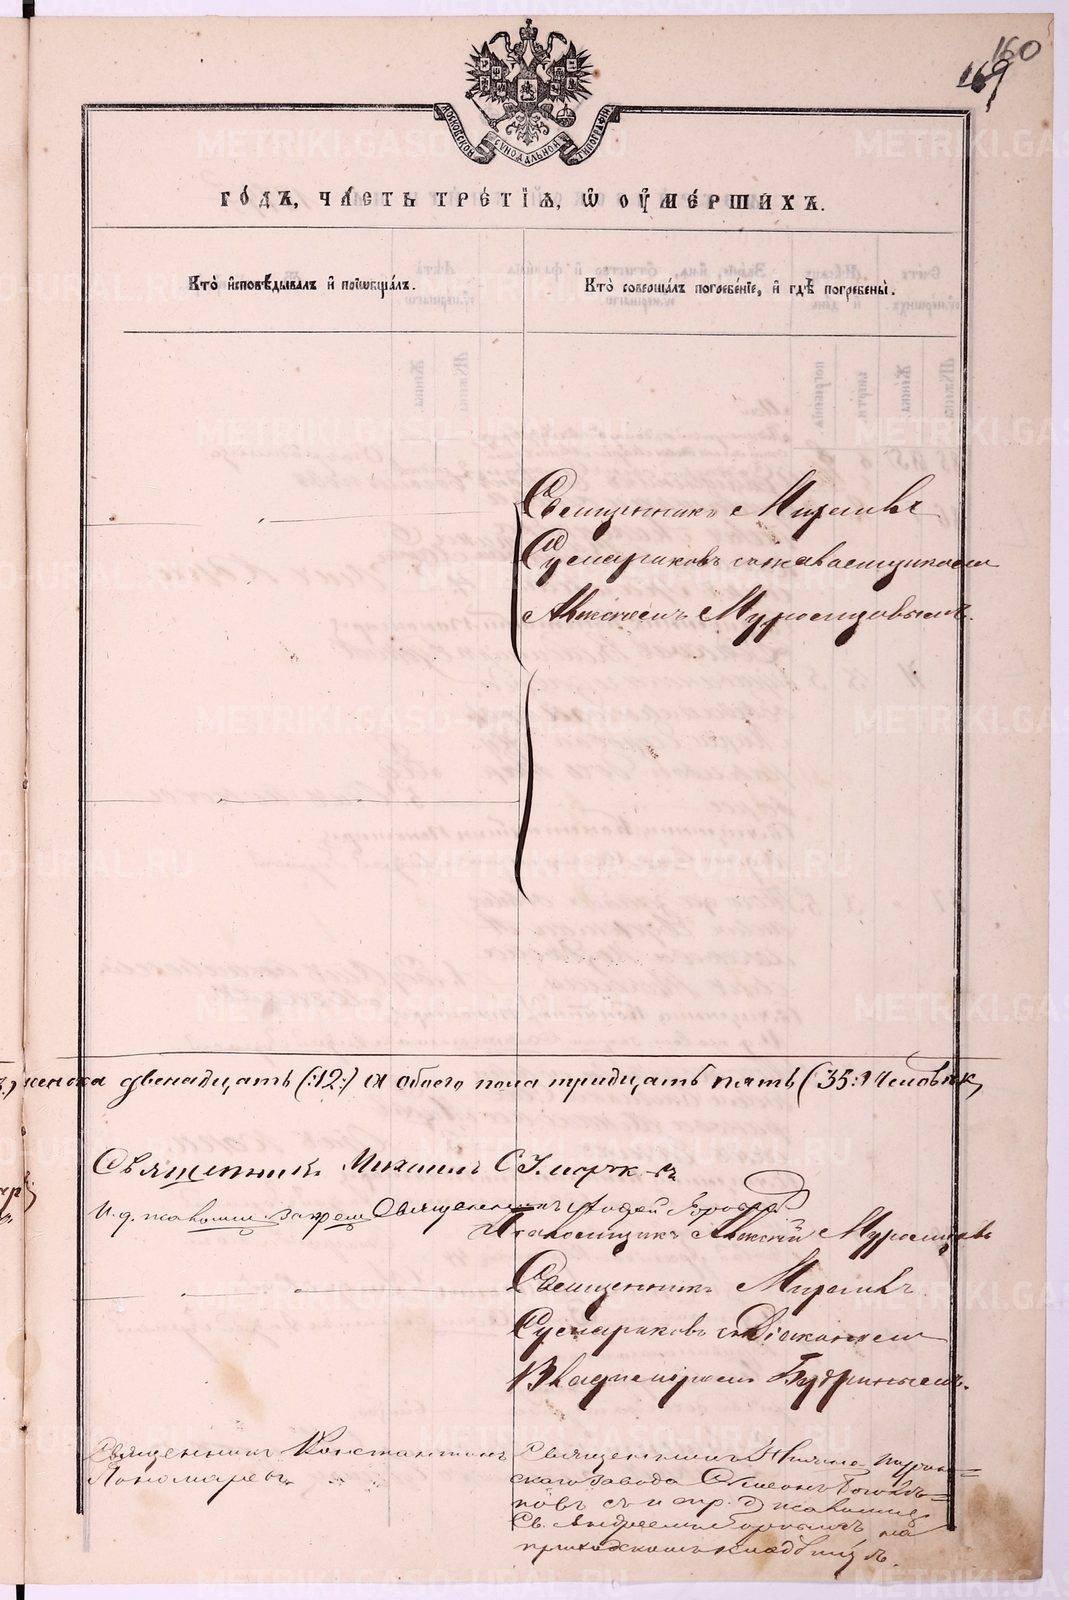 160
169
МОСКОВСКОЙ СѴНОДАЛЬНОЙ ТИПОГРАФІИ
ГО́ДЪ, ЧА́СТЬ ТРЕ́ТІѦ, Ѡ҆ ОУ҆МЕ́РШИХЪ.
Кто̀ и҆сповѣ́дывалъ и҆ пріѡбща́лъ.
Кто̀ соверша́лъ погребе́ніе, и҆ гдѣ̀ погребены̀.
Священникъ Михаилъ
Сумароковъ съ псаломщикомъ
Алексѣемъ Муромцовымъ.
женска двенадцать (:12:) а обоего пола тридцать пять (35:) человѣк
Священникъ Михаилъ
И. д. псаломщ. запрещ. Священникъ Андрей
Псаломщикъ Алексій Муромцовъ
Священникъ Михаилъ
Сумароковъ съ Діакономъ
Владиміромъ Будринымъ.
Священникъ Константинъ
Пономаревъ
Священникъ
скаго завода Симеонъ
съ и спр. д. псаломщ.
Св. Андреемъ на
приходскомъ кладбищѣ.
METRIKI.GASO-URAL.RU